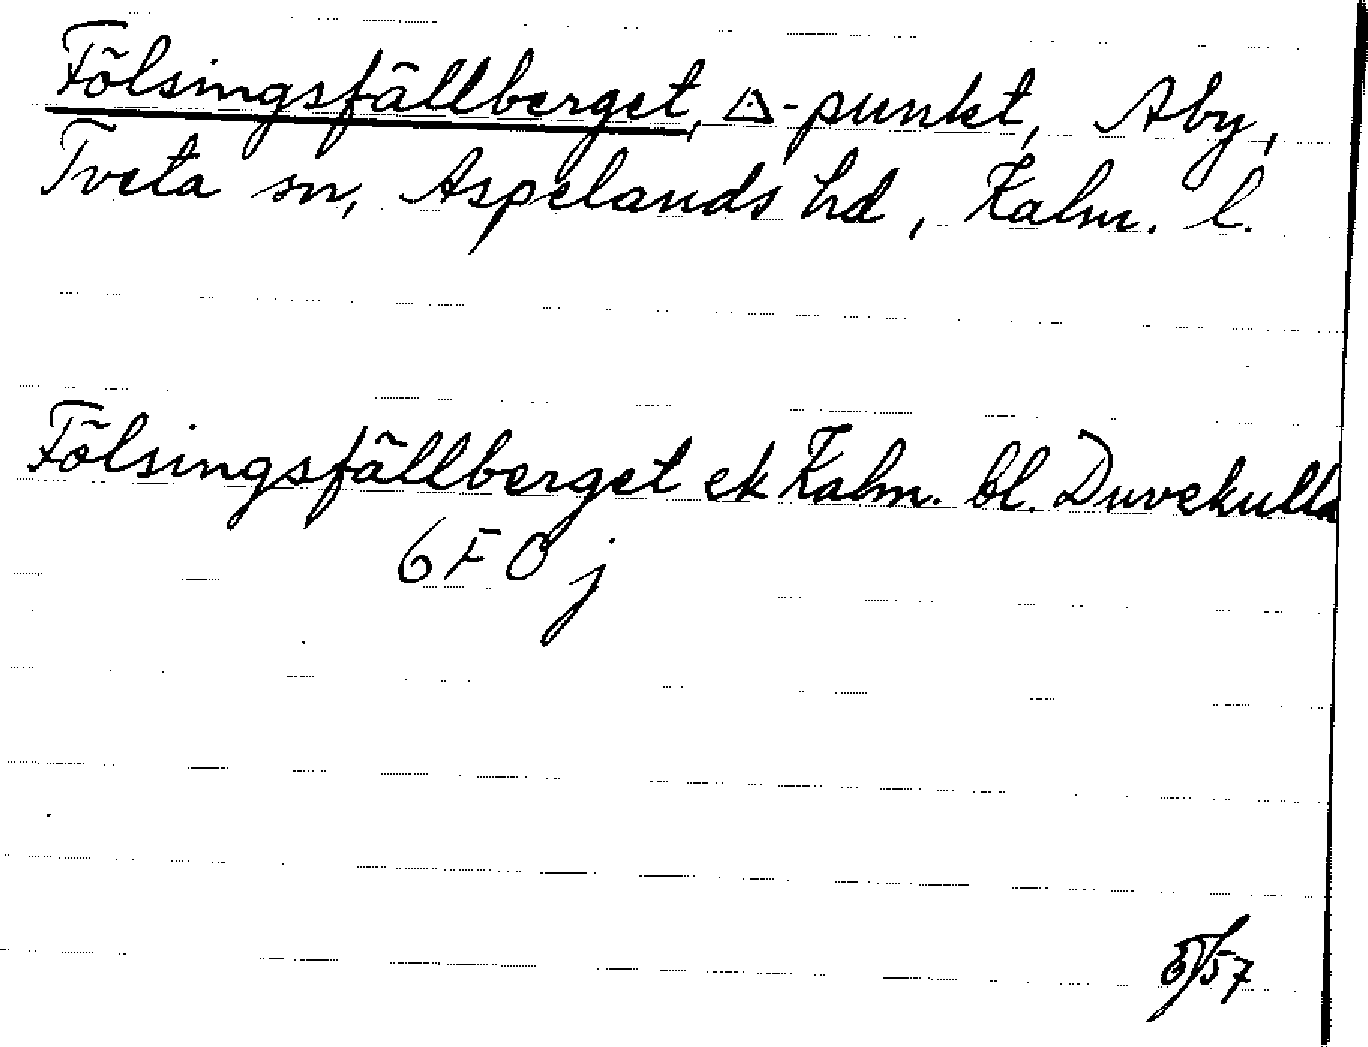 Fölsingsfällberget, △-punkt, Åby,
Tveta sn, Aspelands hd, Kalm. l.
Fölsingsfällberget ek Kalm. bl. Duvekulla
6F 0j